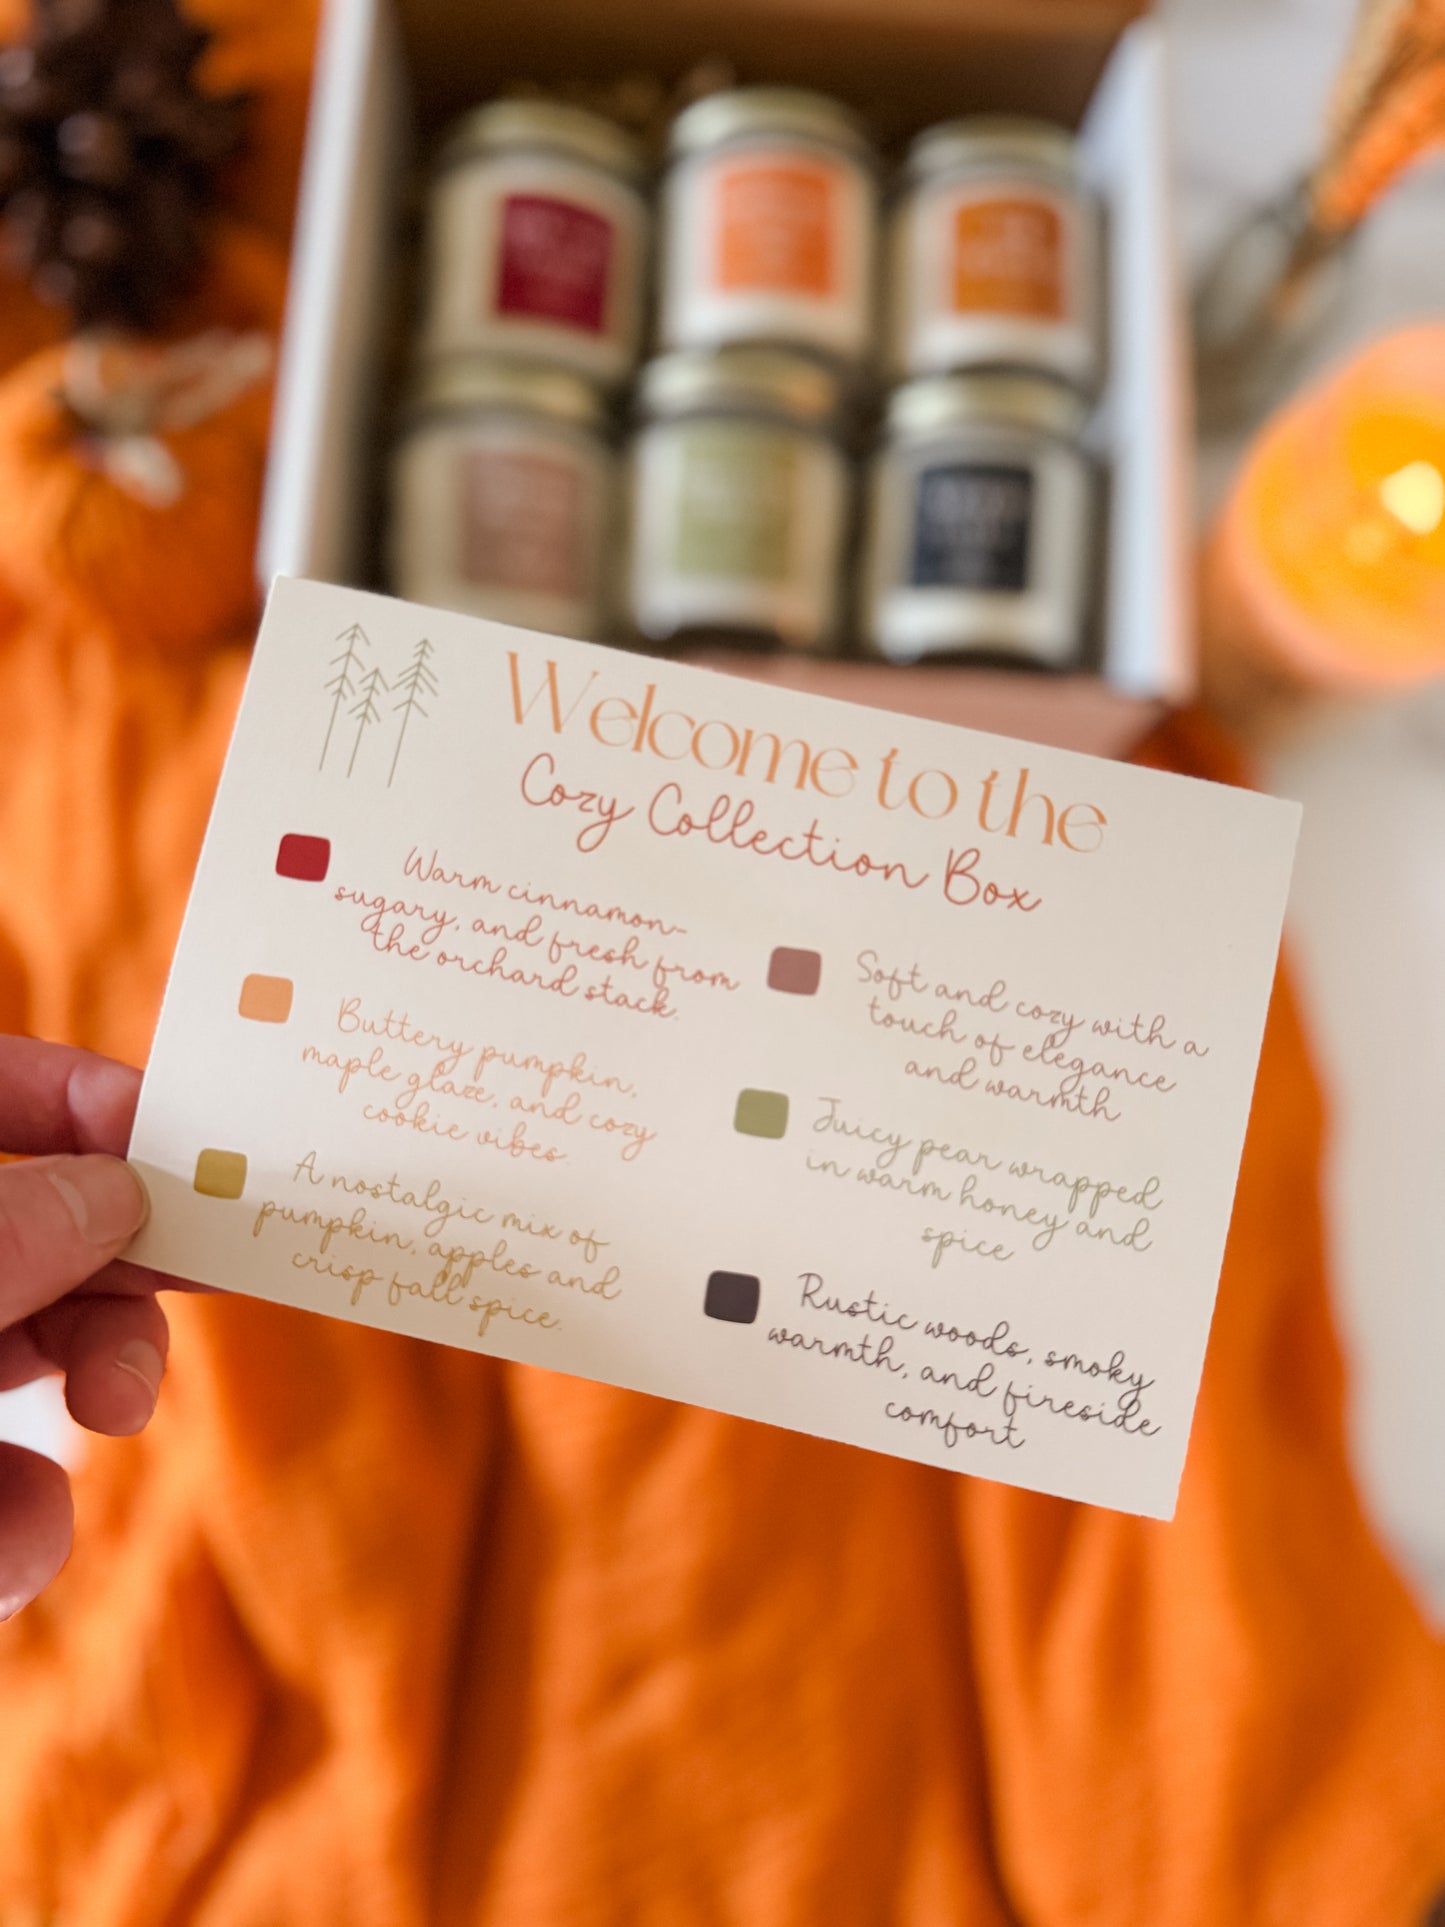 Welcome to the
Cozy Collection Box
Warm cinnamon-
sugary, and fresh from
the orchard stack.
Buttery pumpkin,
maple glaze, and cozy
cookie vibes.
A nostalgic mix of
pumpkin, apples and
crisp fall spice.
Soft and cozy with a
touch of elegance
and warmth
Juicy pear wrapped
in warm honey and
spice
Rustic woods, smoky
warmth, and fireside
comfort